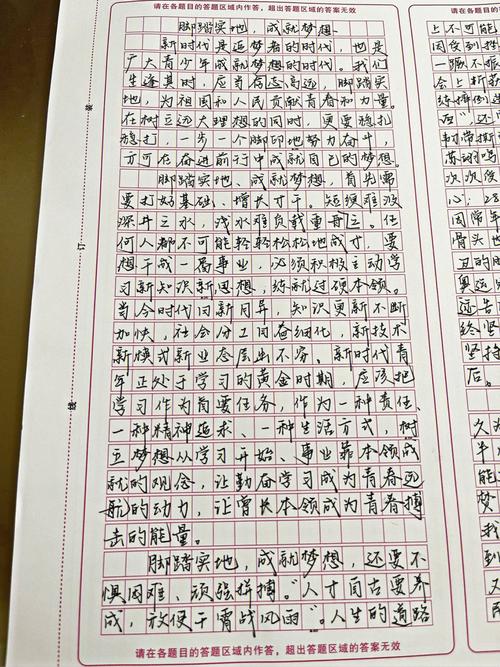 请在各题目的答题区域内作答,超出答题区域的答案无效
脚踏实地,成就梦想.
新时代是追梦者的时代,也是
广大青少年成就梦想的时代。我们
生逢其时,应当励志高远,脚踏实
地,为祖国和人民贡献青春和力量。
在树立远大理想的同时,更要稳扎
稳打,一步一个脚印地努力奋斗,
方可在奋进前行中成就自己的梦想。
脚踏实地、成就梦想,首先需
要打好基础、增长才干。短绠难汲
深井之水,浅水难负载重舟。任
何人都不可能轻轻松松地成才,要
想干成一番事业,必须积极主动学
习新知识新思想,练就过硬本领。
当今时代日新月异,知识更新不断
加快,社会分工日益细化,新技术
新模式新业态层出不穷。新时代青
年正处于学习的黄金时期,应该把
学习作为首要任务,作为一种责任、
一种精神追求、一种生活方式,树
立梦想从学习开始、事业靠本领成
就的观念,让勤奋学习成为青春远
航的动力,让增长本领成为青春搏
击的能量。
脚踏实地,成就梦想,还要不
惧困难、顽强拼搏。"人才自古要养
成,放使干霄战风雨"。人生的道路
请在各题目的答题区域内作答,超出答题区域的答案无效
上不可能
因受到挫
一蹶不振
会上折
练摔倒
"还
韧带撕
次次
心;28
周常年
骨头
丑的脚
奥运
远告
终坚
坚持
后。
久为
梦
变
我们